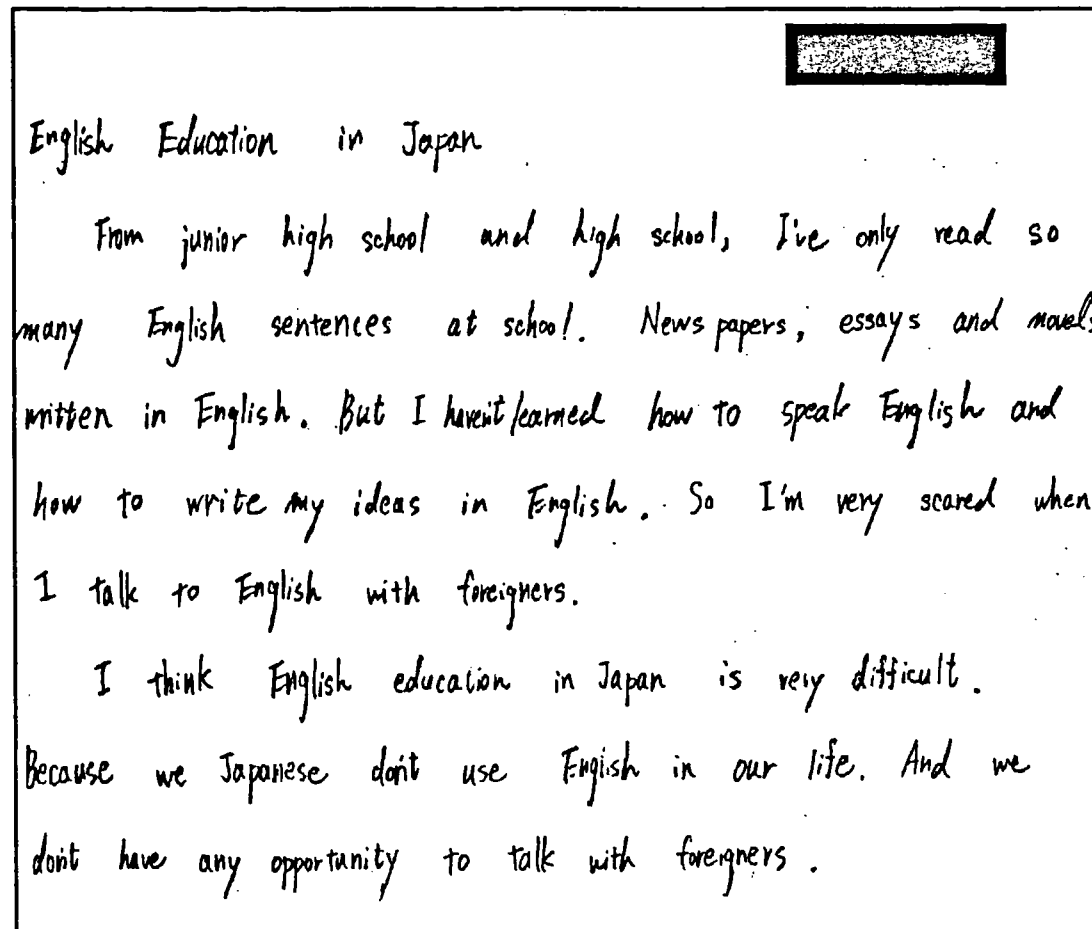 English Education in Japan
From junior high school and high school, I've only read so
many English sentences at school. News papers, essays and novels
written in English. But I haven't learned how to speak English and
how to write my ideas in English. So I'm very scared when
I talk to English with foreigners.
I think English education in Japan is very difficult.
Because we Japanese don't use English in our life. And we
don't have any opportunity to talk with foreigners.